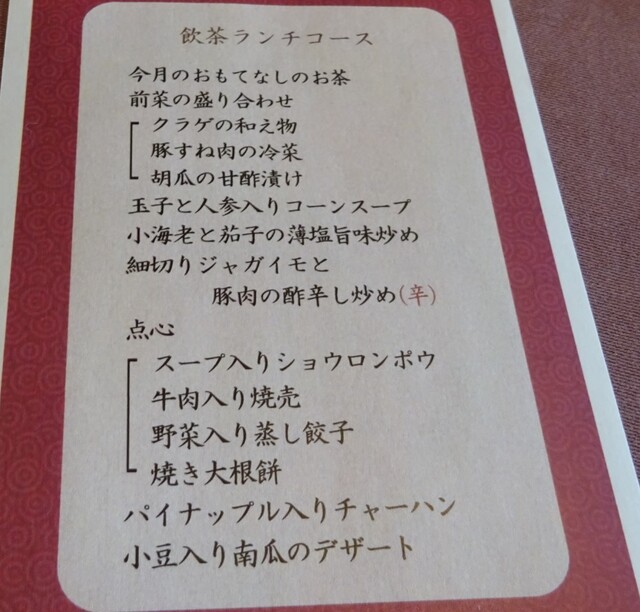 飲茶ランチコース
今月のおもてなしのお茶
前菜の盛り合わせ
クラゲの和え物
豚すね肉の冷菜
胡瓜の甘酢漬け
玉子と人参入りコーンスープ
小海老と茄子の薄塩旨味炒め
細切りジャガイモと
豚肉の酢辛し炒め(辛)
点心
スープ入りショウロンポウ
牛肉入り焼売
野菜入り蒸し餃子
焼き大根餅
パイナップル入りチャーハン
小豆入り南瓜のデザート